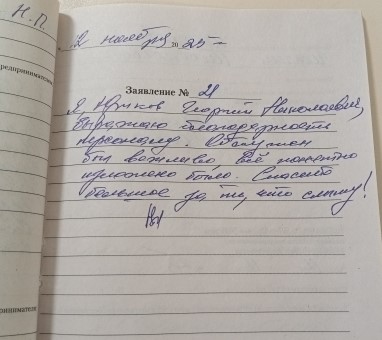 Н.П.
2 ноября 2025
редпринимателем
Заявление № 21
Я Юриков Георгий Николаевич,
Выражаю благодарность
персоналу. Обслужен
был вежливо, Всё понятно
изложено было. Спасибо
большое за то, что слышу!
принимателя